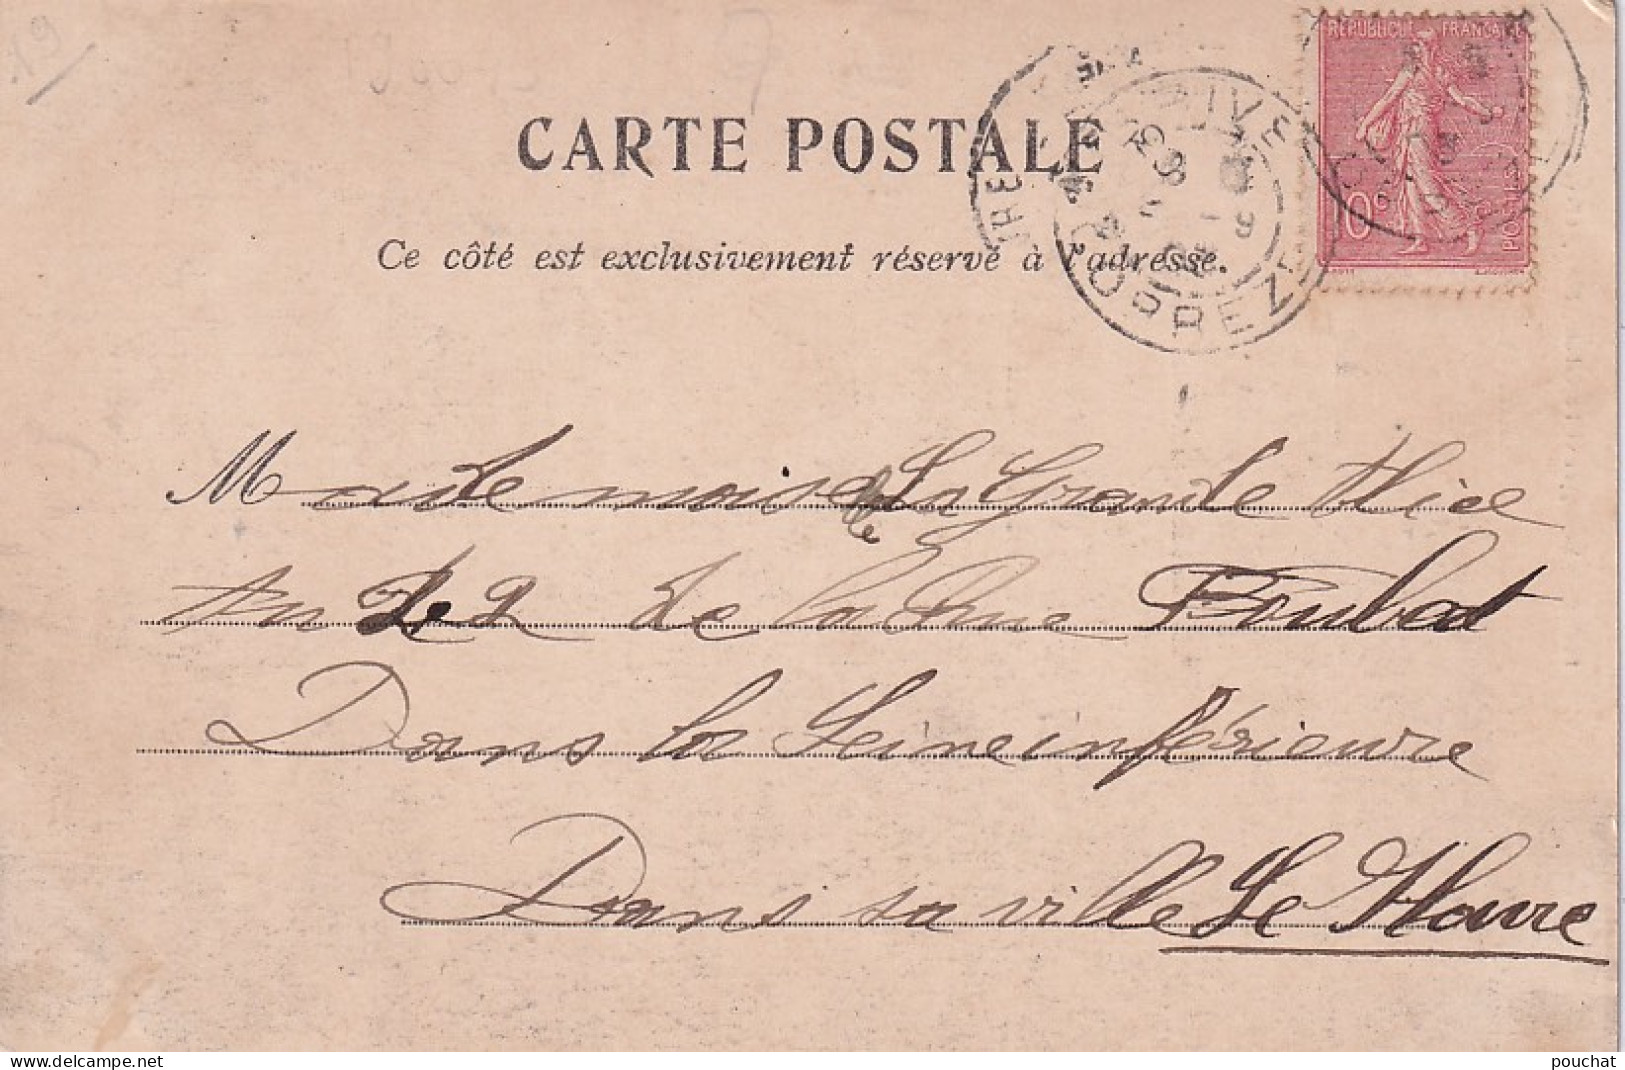 19
CARTE POSTALE
Ce côté est exclusivement réservé à l'adresse.
RÉPUBLIQUE FRANÇAISE
POSTES
BRIVE
CORREZE
Mademoiselle La Grande Alice
Au 22 de la Rue Foubert
Dans la Seine inférieure
Dans sa ville Le Havre
www.delcampe.net
pouchat